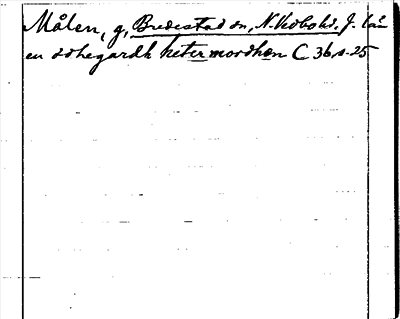 Målen, g, Bredestad sn, N. Vedbo hd, J. län
en ödhegardh heter mordhen C 36, s. 25